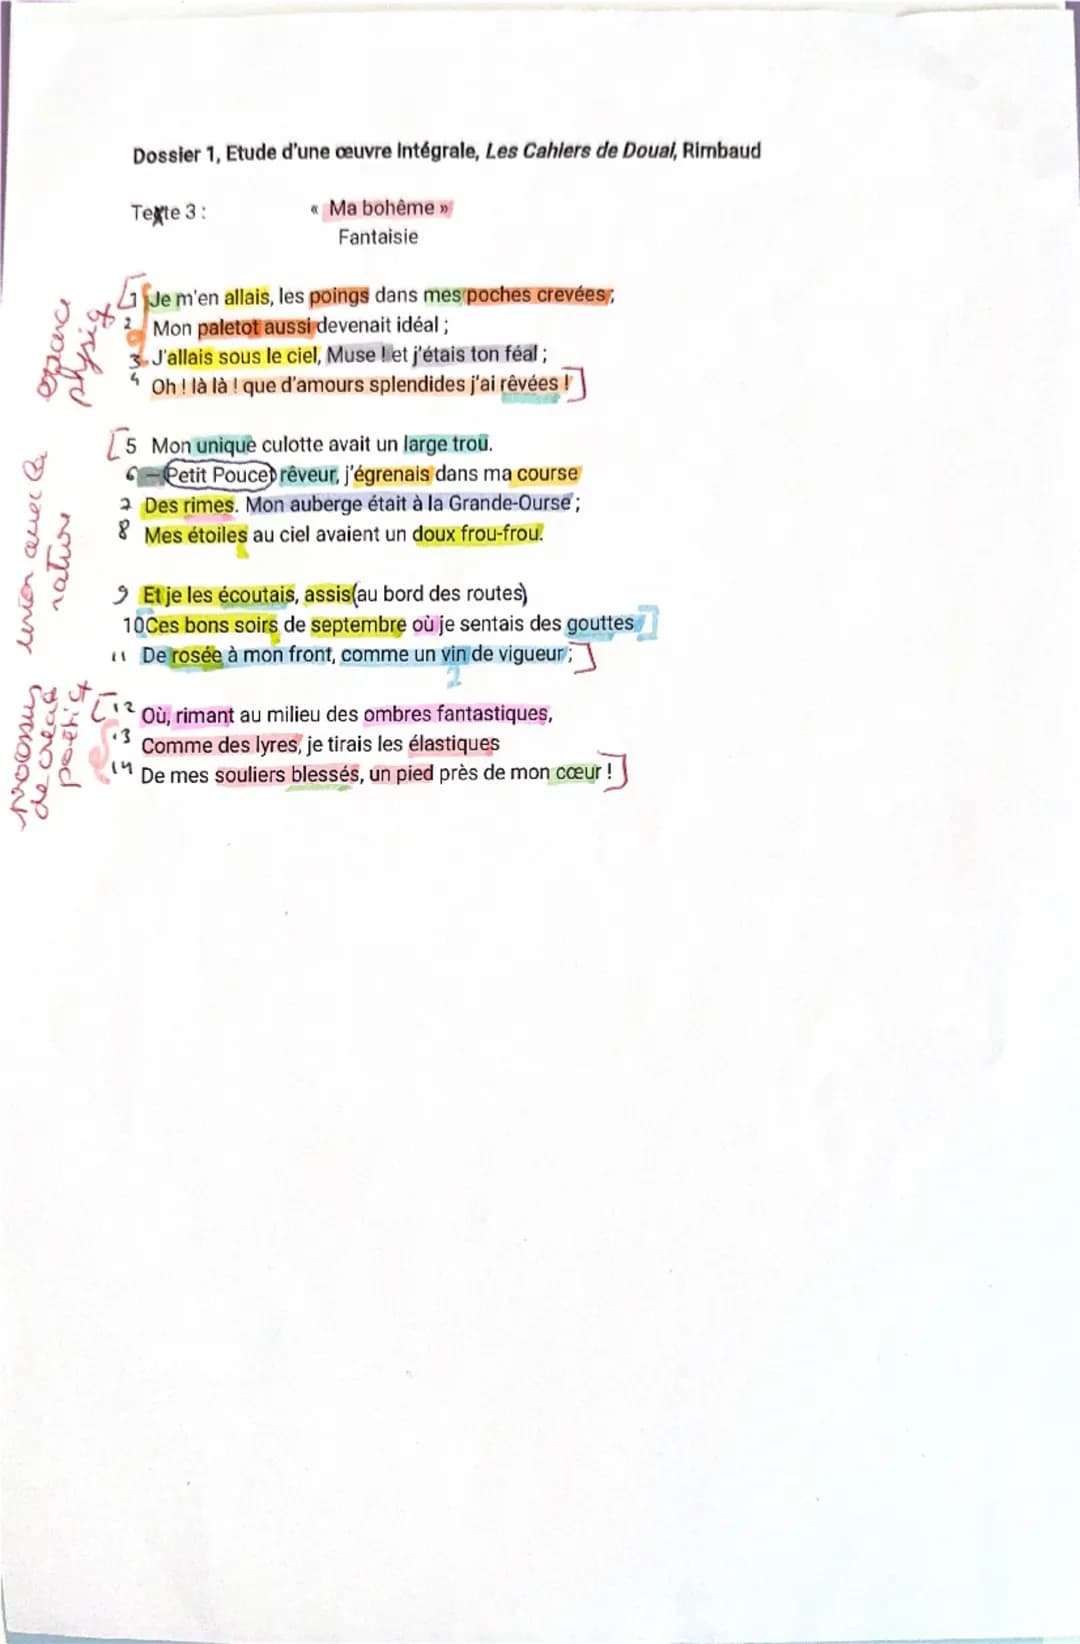 Dossier 1, Etude d'une œuvre intégrale, Les Cahiers de Douai, Rimbaud
Texte 3 :
« Ma bohême »
Fantaisie
espace
physiq
1 Je m'en allais, les poings dans mes poches crevées ;
2 Mon paletot aussi devenait idéal ;
3 J'allais sous le ciel, Muse ! et j'étais ton féal ;
4 Oh ! là là ! que d'amours splendides j'ai rêvées !
union avec la
nature
5 Mon unique culotte avait un large trou.
6 – Petit Poucet rêveur, j'égrenais dans ma course
7 Des rimes. Mon auberge était à la Grande-Ourse ;
8 Mes étoiles au ciel avaient un doux frou-frou.
9 Et je les écoutais, assis au bord des routes,
10 Ces bons soirs de septembre où je sentais des gouttes
11 De rosée à mon front, comme un vin de vigueur ;
2
processus
de créat
poétiq
12 Où, rimant au milieu des ombres fantastiques,
13 Comme des lyres, je tirais les élastiques
14 De mes souliers blessés, un pied près de mon cœur !